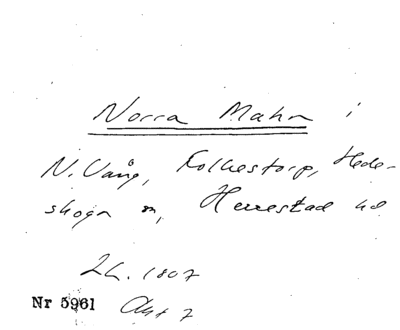 Norra Mahn i
N. Vång, Folkestorp, Hede-
skoga m, Herrestad hd
2h. 1807
Nr 5961 Akt 7